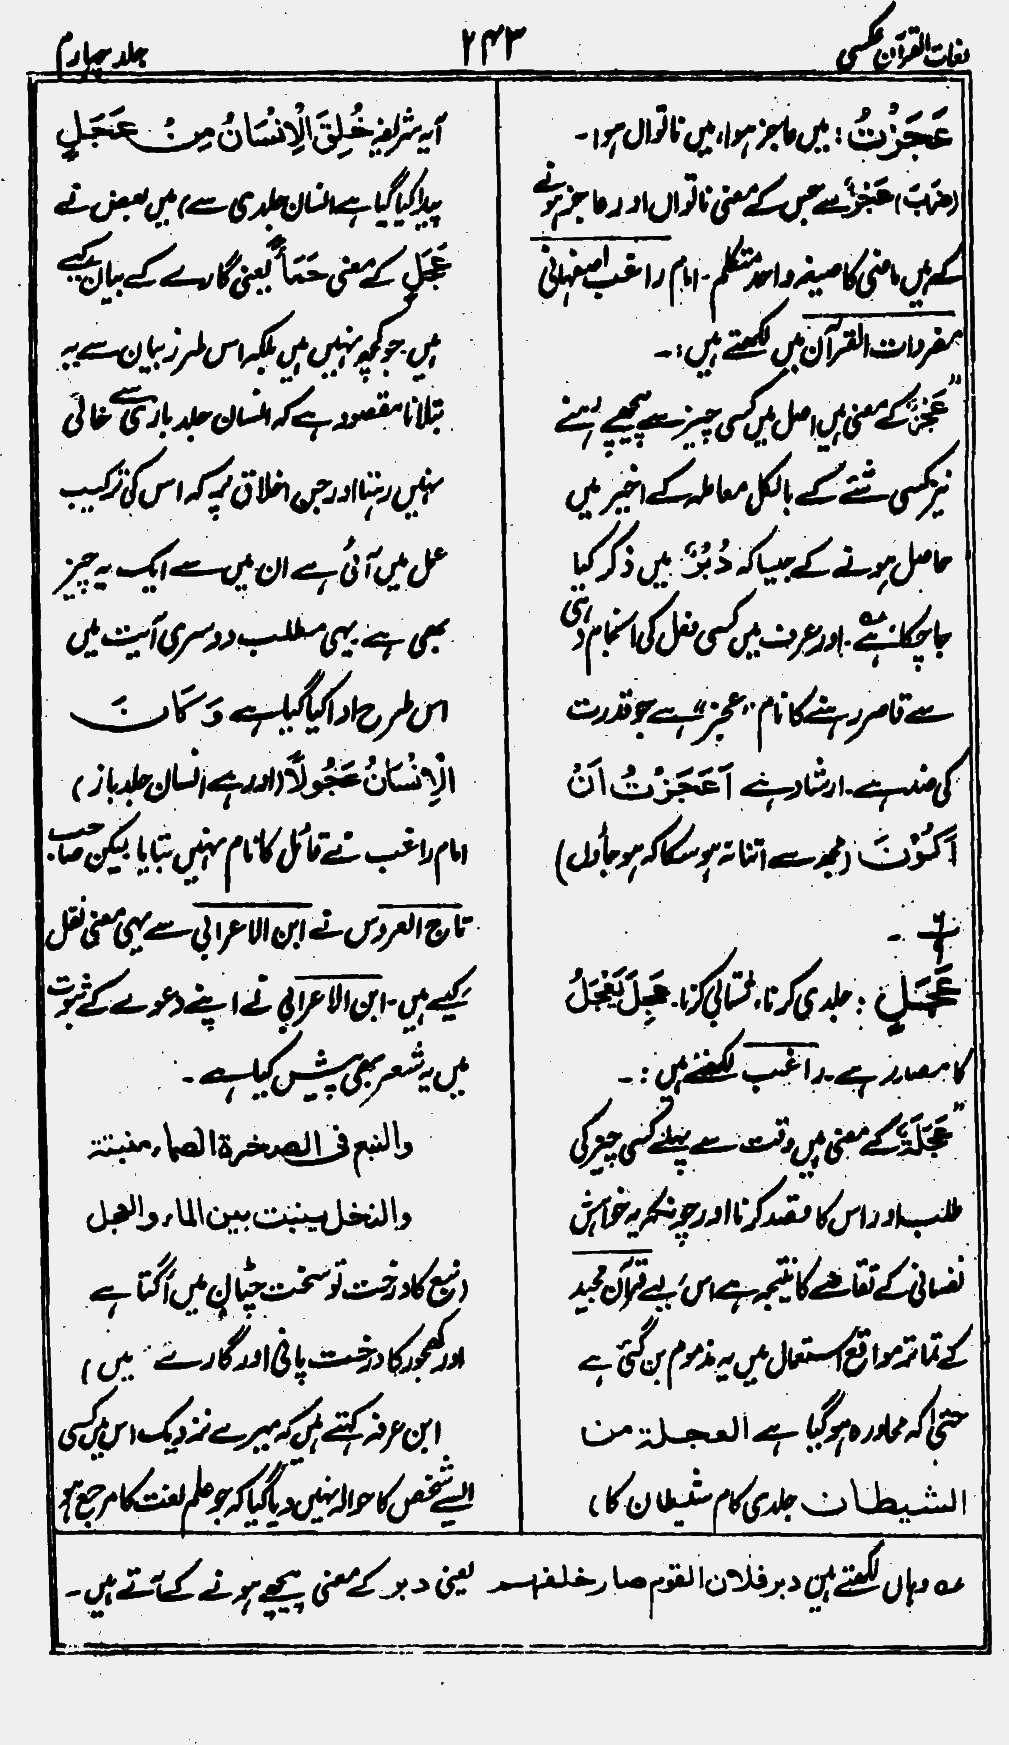 لغات القرآن عکسی
۲۴۳
جلد چہارم
عَجَزْتُ : میں عاجز ہوا، میں ناتواں ہوا۔
(ضَرَبَ) عَجْزٌ سے جس کے معنی ناتواں اور عاجز ہونے
کے ہیں ماضی کا صیغہ واحد متکلم ۔ امام راغب اصفہانی
مفردات القرآن میں لکھتے ہیں :۔
"عَجْزٌ کے معنی ہیں اصل میں کسی چیز سے پیچھے رہنے
نیز کسی شئے کے بالکل معاملہ کے اخیر میں
حاصل ہونے کے جیسا کہ دُبُرٌ میں ذکر کیا
جا چکا ہے عہ ۔ اور عرف میں کسی فعل کی انجام دہی
سے قاصر رہنے کا نام "عجز" ہے جو قدرت
کی ضد ہے ۔ ارشاد ہے اَعَجَزْتُ اَنْ
اَکُوْنَ (مجھ سے اتنا نہ ہو سکا کہ ہو جاؤں)
۶
۹ ۔
عَجَلٍ : جلدی کرنا، شتابی کرنا ۔ عَجِلَ یَعْجَلُ
کا مصدر ہے ۔ راغب لکھتے ہیں :۔
"عَجَلَةٌ کے معنی ہیں وقت سے پہلے کسی چیز کی
طلب اور اس کا قصد کرنا اور چونکہ یہ خواہش
نفسانی کے تقاضے کا نتیجہ ہے اس لیے قرآن مجید
کے تمام تر مواقع استعمال میں یہ مذموم بن گئی ہے
حتیٰ کہ محاورہ ہو گیا ہے العجلة من
الشیطان جلدی کام شیطان کا)
آیہ شریفہ خُلِقَ الْاِنْسَانُ مِنْ عَجَلٍ
پیدا کیا گیا ہے انسان جلدی سے) میں بعض نے
عَجَلٍ کے معنی حَمَأٌ یعنی گارے کے بیان کیے
ہیں جو کچھ نہیں ہیں بلکہ اس طرز بیان سے یہ
بتلانا مقصود ہے کہ انسان جلد بازی سے خالی
نہیں رہتا اور جن اخلاق پر کہ اس کی ترکیب
عمل میں آئی ہے ان میں سے ایک یہ چیز
بھی ہے ۔ یہی مطلب دوسری آیت میں
اس طرح ادا کیا گیا ہے وَکَانَ
الْاِنْسَانُ عَجُولًا (اور ہے انسان جلد باز)
امام راغب نے قائل کا نام نہیں بتایا لیکن صاحب
تاج العروس نے ابن الاعرابی سے یہی معنی نقل
کیے ہیں ۔ ابن الاعرابی نے اپنے دعوے کے ثبوت
میں یہ شعر بھی پیش کیا ہے ۔
والنبع فی الصخرة الصماء منبتة
والنخل ینبت بین الماء والعجل
(نبع کا درخت تو سخت چٹان میں اگتا ہے
اور کھجور کا درخت پانی اور گارے میں)
ابن عرفہ کہتے ہیں کہ میرے نزدیک اس میں کسی
ایسے شخص کا حوالہ نہیں دیا گیا کہ جو علم لغت کا مرجع ہو
عہ وہاں لکھتے ہیں دبر فلان القوم صار خلفهم یعنی دبر کے معنی پیچھے ہونے کے آتے ہیں ۔